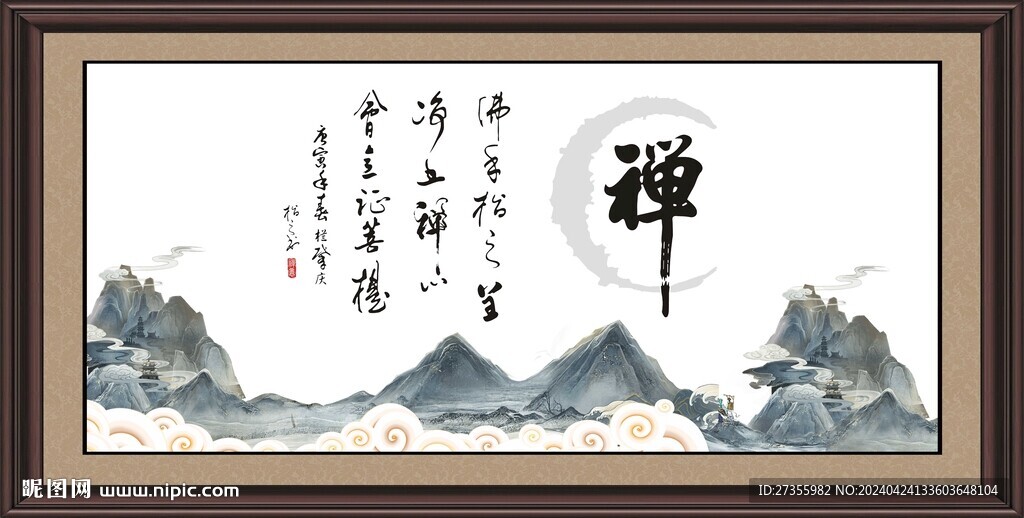 禅
佛手指之呈
净土禅心
會立证菩提
庚寅年春 肇庆
昵图网 www.nipic.com
ID:27355982 NO:20240424133603648104